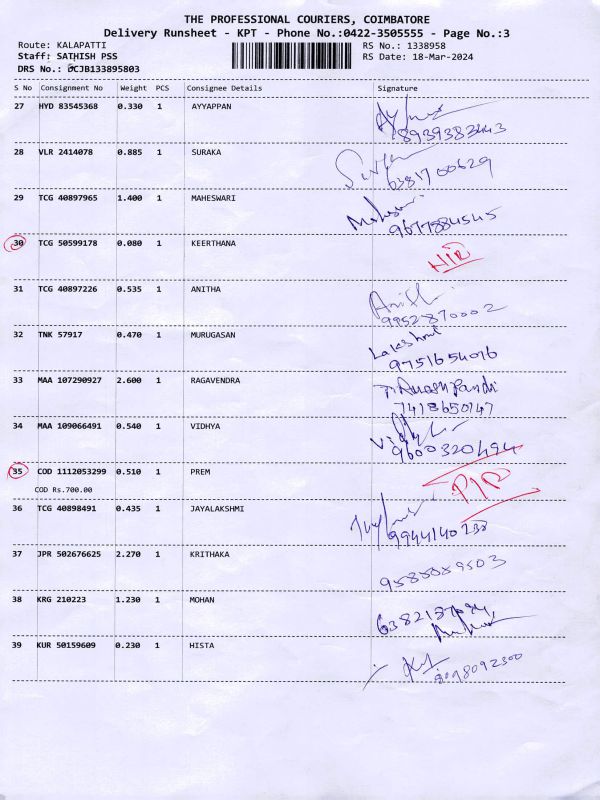 THE PROFESSIONAL COURIERS, COIMBATORE
Delivery Runsheet - KPT - Phone No.:0422-3505555 - Page No.:3
Route: KALAPATTI RS No.: 1338958
Staff: SATHISH PSS RS Date: 18-Mar-2024
DRS No.: DCJB133895803
S No Consignment No Weight PCS Consignee Details Signature
27 HYD 83545368 0.330 1 AYYAPPAN
8939383443
28 VLR 2414078 0.885 1 SURAKA
6381700629
29 TCG 40897965 1.400 1 MAHESWARI
9677884545
30 TCG 50599178 0.080 1 KEERTHANA
31 TCG 40897226 0.535 1 ANITHA
9952870002
32 TNK 57917 0.470 1 MURUGASAN Lakshmi
9751654016
33 MAA 107290927 2.600 1 RAGAVENDRA
7418650147
34 MAA 109066491 0.540 1 VIDHYA
9600320494
35 COD 1112053299 0.510 1 PREM
COD Rs.700.00
36 TCG 40898491 0.435 1 JAYALAKSHMI
9944140238
37 JPR 502676625 2.270 1 KRITHAKA
9585859503
38 KRG 210223 1.230 1 MOHAN
39 KUR 50159609 0.230 1 HISTA
8098092300